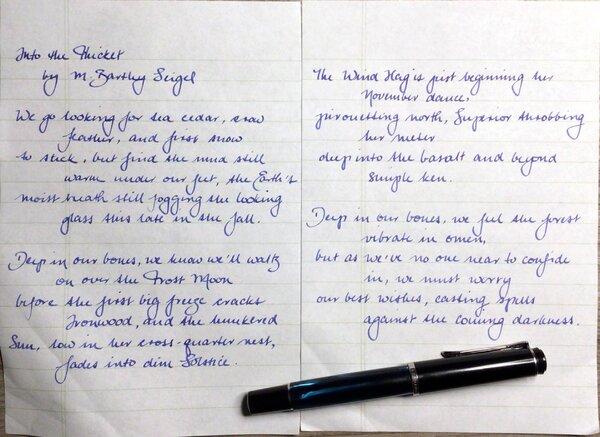 Into the Thicket
by M. Bartley Seigel
We go looking for sea cedar, crow
feather, and first snow
to stick, but find the mud still
warm under our feet, the Earth's
moist breath still fogging the looking
glass this late in the fall.
Deep in our bones, we know we'll waltz
on over the Frost Moon
before the first big freeze cracks
Ironwood, and the bunkered
Sun, low in her cross-quarter nest,
fades into dim Solstice.
The Wind Hag is just beginning her
November dance,
pirouetting north, Superior throbbing
her meter
deep into the basalt and beyond
simple ken.
Deep in our bones, we feel the forest
vibrate in omen,
but as we've no one near to confide
in, we must worry
our best wishes, casting spells
against the coming darkness.